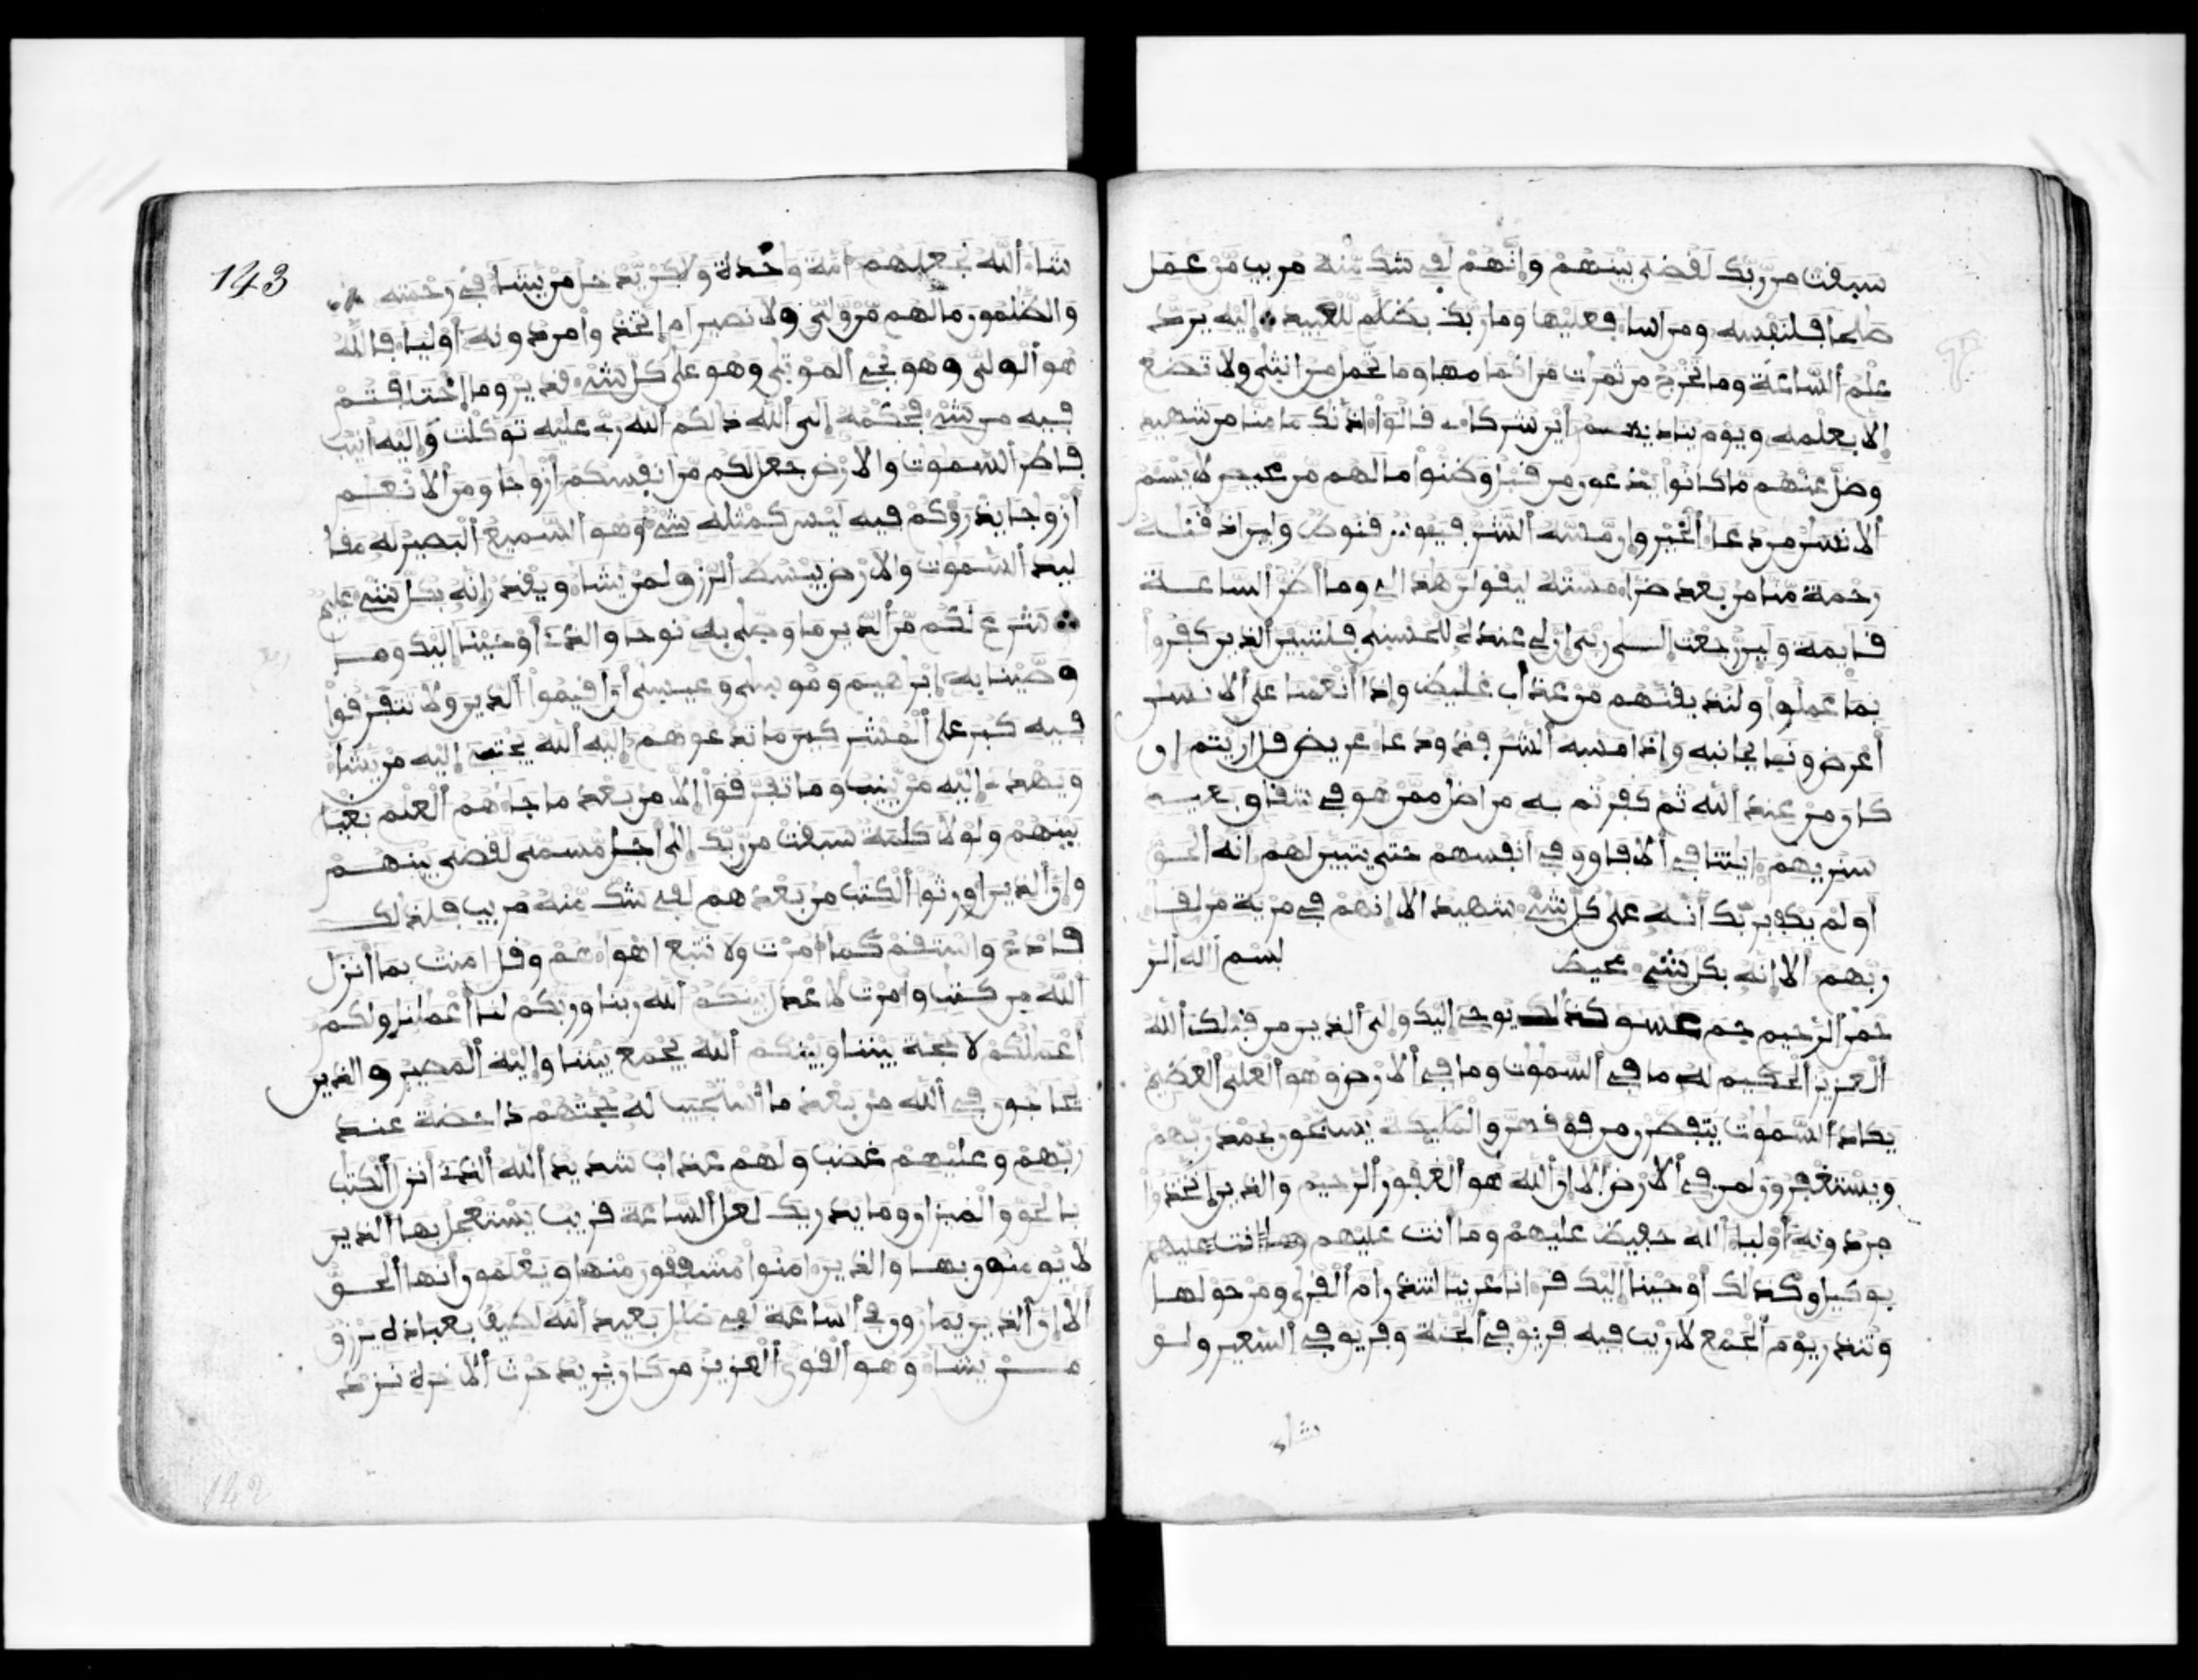 سبقت من ربك لقضى بينهم وإنهم لفي شك منه مريب من عمل
صلحا فلنفسه ومن اسا فعليها وما ربك بظلم للعبيد إليه يرد
علم الساعة وما تخرج من ثمرات من اكمامها وما تحمل من انثى ولا تضع
إلا بعلمه ويوم يناديهم أين شركاءى قالوا اذنك ما منا من شهيد
وضل عنهم ما كانوا يدعون من قبل وظنوا ما لهم من محيص لا يسم
الانسن من دعا الخير وإن مسه الشر فيوس قنوط ولين اذقنه
رحمة منا من بعد ضرا مسته ليقولن هذا لي وما اظن الساعة
قايمة ولين رجعت إلى ربي إن لي عنده للحسنى فلننبين الذين كفروا
بما عملوا ولنذيقنهم من عذاب غليظ وإذا أنعمنا على الانسن
أعرض ونا بجانبه وإذا مسه الشر فذو دعا عريض قل ارايتم إن
كان من عند الله ثم كفرتم به من اضل ممن هو في شقاق بعيد
سنريهم ءايتنا في الافاق وفي أنفسهم حتى يتبين لهم انه الحق
اولم يكف بربك انه على كل شيء شهيد الا إنهم في مرية من لقا
ربهم الا إنه بكل شيء محيط بسم الله الر
حمن الرحيم حم عسق كذلك يوحي إليك وإلى الذين من قبلك الله
العزيز الحكيم له ما في السموت وما في الارض وهو العلي العظيم
يكاد السموت يتفطرن من فوقهن والمليكة يسبحون بحمد ربهم
ويستغفرون لمن في الارض الا إن الله هو الغفور الرحيم والذين اتخذوا
من دونه أوليا الله حفيظ عليهم وما أنت عليهم
بوكيل وكذلك أوحينا إليك قرءانا عربيا لتنذر أم القرى ومن حولها
وتنذر يوم الجمع لا ريب فيه فريق في الجنة وفريق في السعير ولو
شاء
143
شا الله لجعلهم أمة وحدة ولكن يدخل من يشا في رحمته
والظلمون ما لهم من ولي ولا نصير ام إتخذوا من دونه أوليا فالله
هو الولي وهو يحي الموتى وهو على كل شيء قدير وما إختلفتم
فيه من شيء فحكمه إلى الله ذلكم الله ربي عليه توكلت وإليه انيب
فاطر السموت والارض جعل لكم من انفسكم أزوجا ومن الانعم
أزوجا يذرؤكم فيه ليس كمثله شيء وهو السميع البصير له مقا
ليد السموت والارض يبسط الرزق لمن يشا ويقدر إنه بكل شيء عليم
شرع لكم من الدين ما وصى به نوحا والذي أوحينا إليك وما
وصينا به إبرهيم وموسى وعيسى أن أقيموا الدين ولا تتفرقوا
فيه كبر على المشركين ما تدعوهم إليه الله يجتبي إليه من يشا
ويهدي إليه من ينيب وما تفرقوا إلا من بعد ما جاءهم العلم بغيا
بينهم ولولا كلمة سبقت من ربك إلى أجل مسمى لقضى بينهم
وإن الذين اورثوا الكتب من بعدهم لفي شك منه مريب فلذلك
فادع واستقم كما أمرت ولا تتبع اهواءهم وقل امنت بما أنزل
الله من كتب وأمرت لاعدل بينكم الله ربنا وربكم لنا أعملنا ولكم
أعملكم لا حجة بيننا وبينكم الله يجمع بيننا وإليه المصير والذين
يحاجون في الله من بعد ما استجيب له حجتهم داحضة عند
ربهم وعليهم غضب ولهم عذاب شديد الله الذي أنزل الكتب
بالحق والميزان وما يدريك لعل الساعة قريب يستعجل بها الذين
لا يومنون بها والذين ءامنوا مشفقون منها ويعلمون أنها الحق
الا إن الذين يمارون في الساعة لفي ضلل بعيد الله لطيف بعباده يرزق
من يشا وهو القوي العزيز من كان يريد حرث الاخرة نزد
142